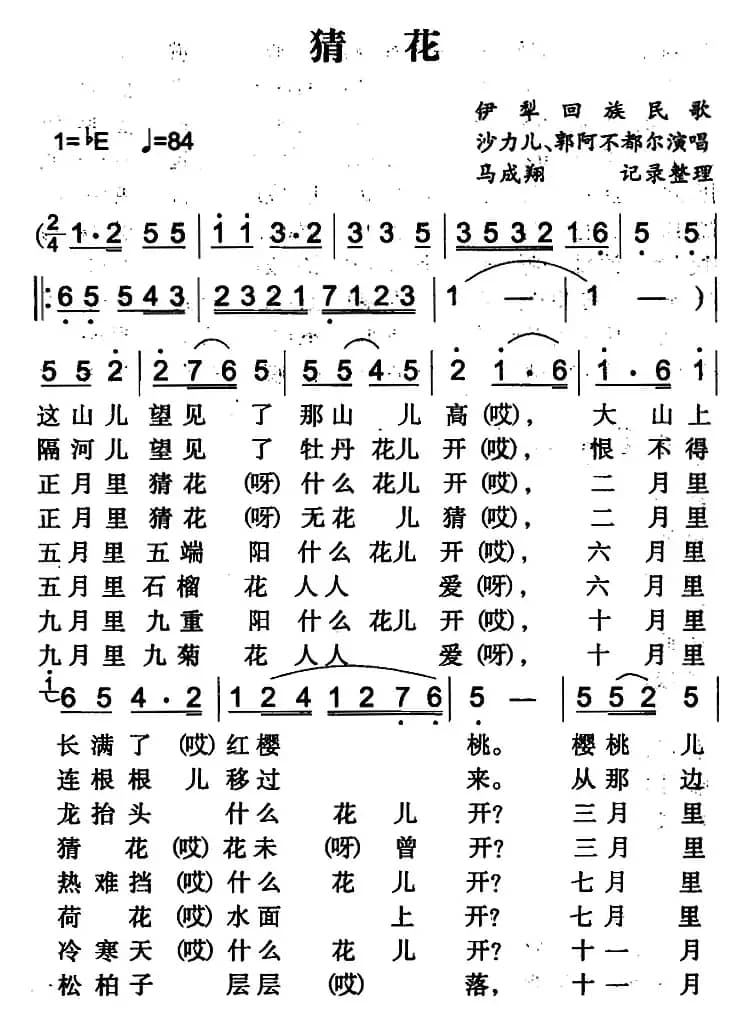 猜 花
伊犁回族民歌
1=♭E ♩=84 沙力儿、郭阿不都尔演唱
马成翔 记录整理
(2/4 1·2 5 5 | 1 1 3·2 | 3 3 5 | 3532 16 | 5 5 |
‖: 65 543 | 2321 7123 | 1 — | 1 — )|
5 5 2 | 2 76 5 | 5 5 45 | 2 1·6 | 1·6 1 |
这山儿 望见 了 那山 儿 高(哎), 大 山上
隔河儿 望见 了 牡丹 花儿 开(哎), 恨 不得
正月里 猜花 (呀) 什么 花儿 开(哎), 二 月里
正月里 猜花 (呀) 无花 儿 猜(哎), 二 月里
五月里 五端 阳 什么 花儿 开(哎), 六 月里
五月里 石榴 花 人人 爱(呀), 六 月里
九月里 九重 阳 什么 花儿 开(哎), 十 月里
九月里 九菊 花 人人 爱(呀), 十 月里
i 6 5 4·2 | 124 1276 | 5 — | 5 52 5 |
长满了 (哎)红樱 桃。 樱桃 儿
连根根 儿移过 来。 从那 边
龙抬头 什么 花 儿 开? 三月 里
猜 花 (哎)花未 (呀) 曾 开? 三月 里
热难挡 (哎)什么 花 儿 开? 七月 里
荷 花 (哎)水面 上 开? 七月 里
冷寒天 (哎)什么 花 儿 开? 十一 月
松柏子 层层 (哎) 落, 十一 月